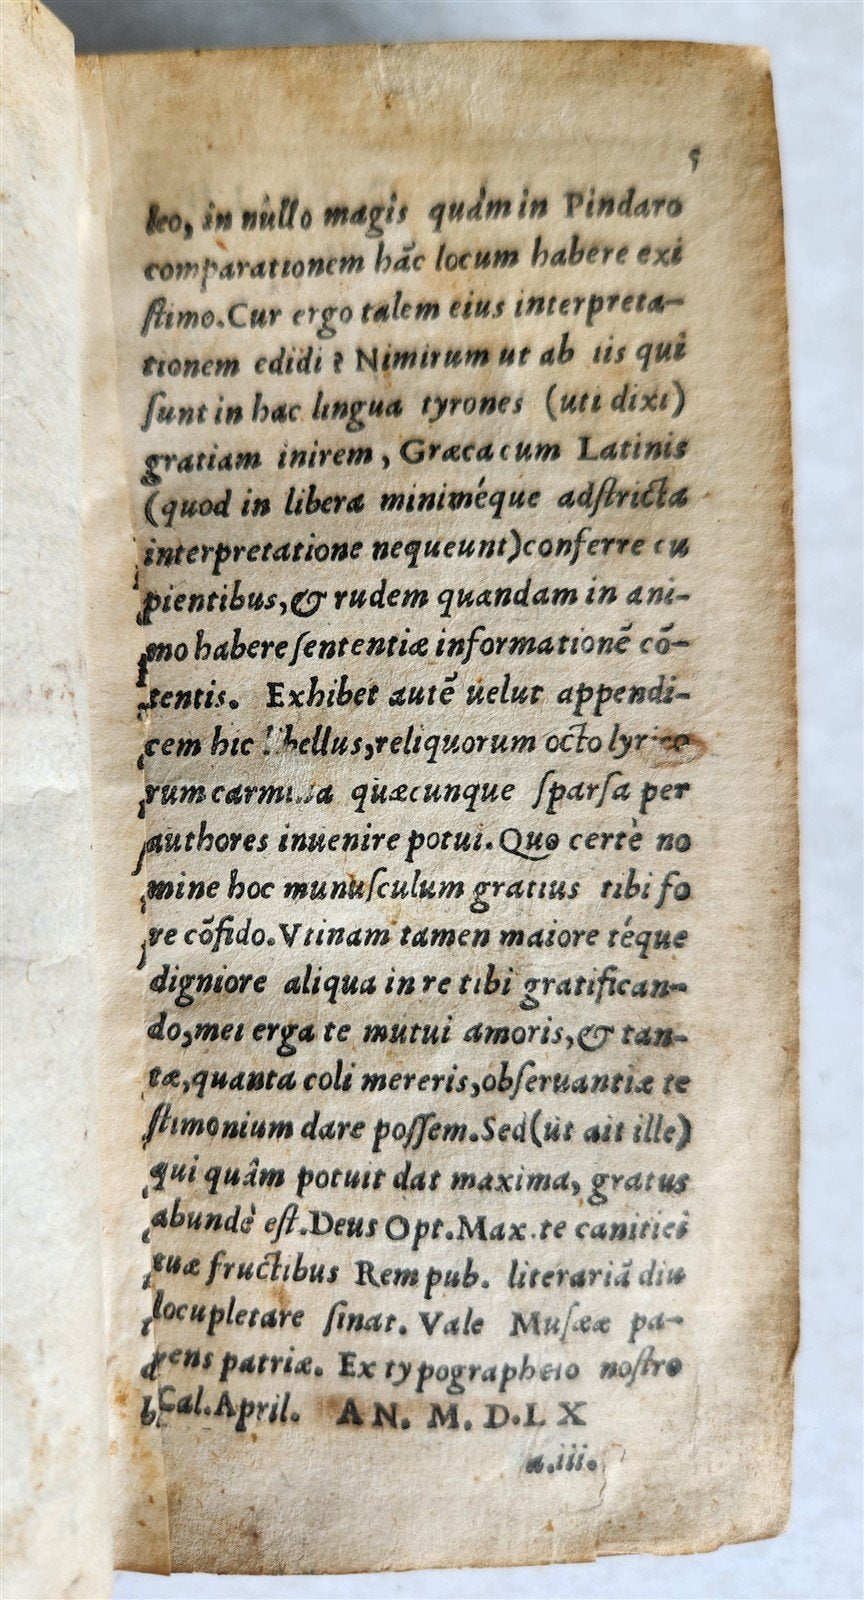 5
leo, in nullo magis quàm in Pindaro
comparationem hāc locum habere exi
stimo. Cur ergo talem eius interpreta-
tionem edidi? Nimirum ut ab iis qui
sunt in hac lingua tyrones (uti dixi)
gratiam inirem, Græca cum Latinis
(quod in libera miniméque adstricta
interpretatione nequeunt) conferre cu
pientibus, & rudem quandam in ani-
mo habere sententiæ informationē cō-
tentis. Exhibet autē uelut appendi-
cem hic libellus, reliquorum octo lyrico
rum carmina quæcunque sparsa per
authores inuenire potui. Quo certè no
mine hoc munusculum gratius tibi fo
re cōfido. Vtinam tamen maiore téque
digniore aliqua in re tibi gratifican-
do, mei erga te mutui amoris, & tan-
tæ, quanta coli mereris, obseruantiæ te
stimonium dare possem. Sed (ut ait ille)
qui quâm potuit dat maxima, gratus
abundè est. Deus Opt. Max. te canitiei
tuæ fructibus Rempub. literariā diu
locupletare sinat. Vale Musææ pa-
rens patriæ. Ex typographeio nostro
Cal. April. AN. M. D. LX
a.iii.